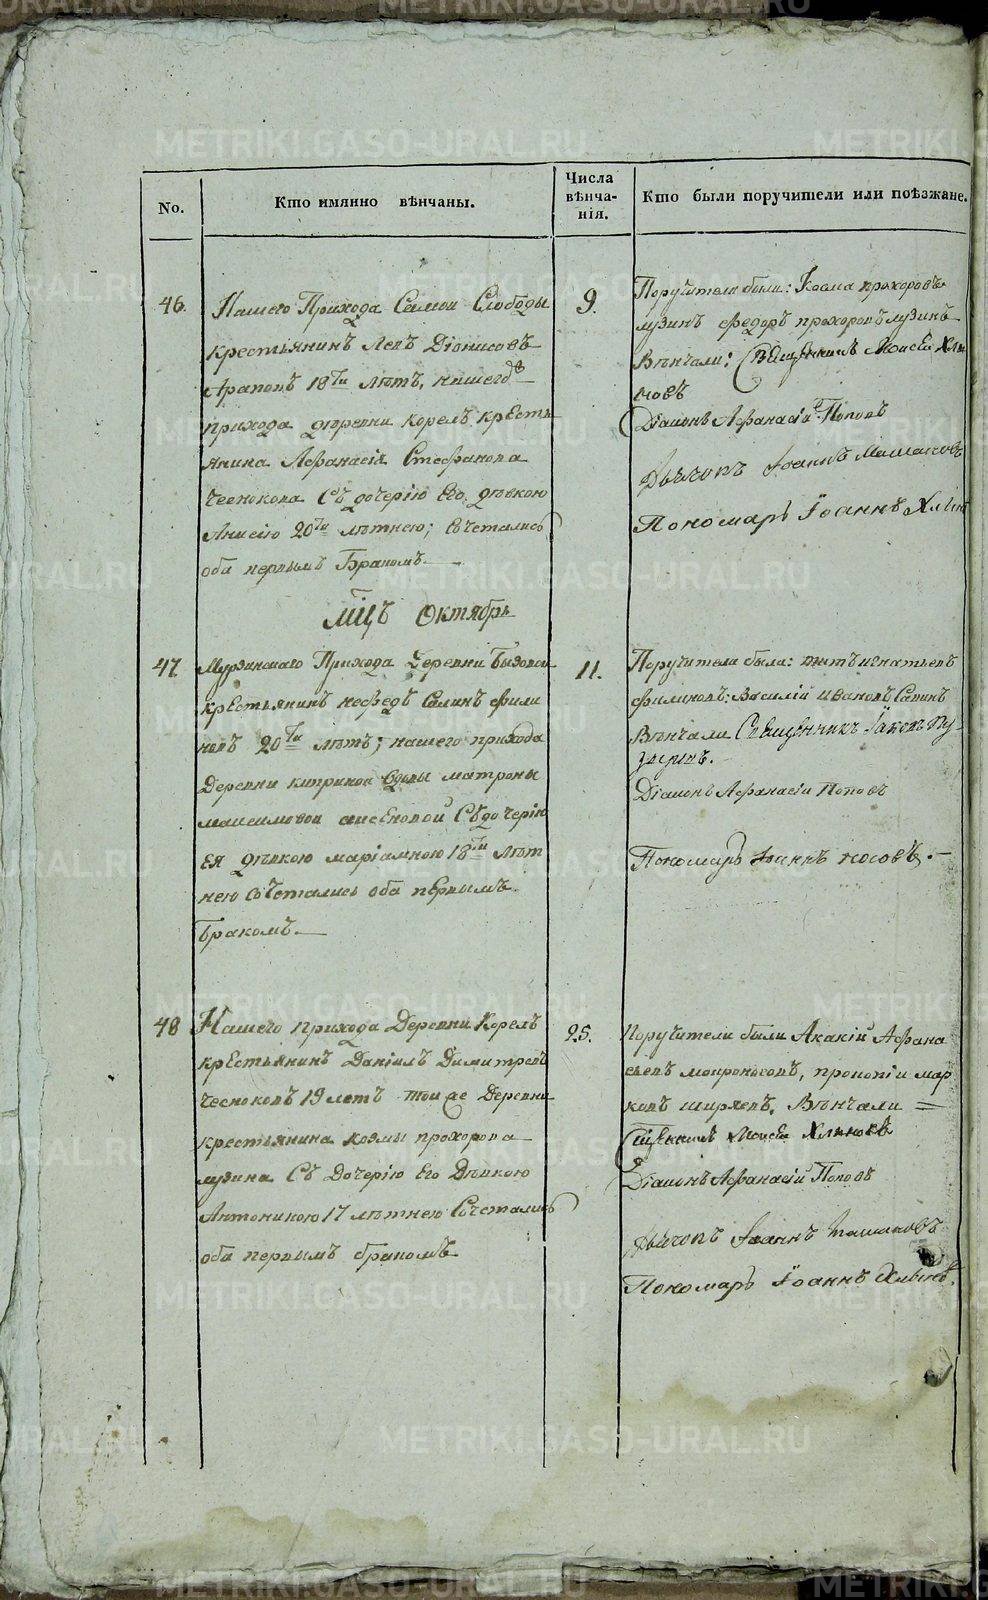 METRIKI.GASO-URAL.RU
No.
Кто имянно вѣнчаны.
Числа вѣнча-нія.
Кто были поручители или поѣзжане.
46.
Нашего Прихода Самои Слободы
крестьянинъ Левъ Діонисовъ
Араповъ 18ти лѣтъ, нашегожъ
прихода деревни Корелъ крестъ
янина Афанасія Стефанова
Чеснокова съ дочерію Его дѣвкою
Анисіею 20ти лѣтнею; сочетались
оба первымъ Бракомъ.
9.
Поручители были: Косма прохоровъ
лузинъ федоръ прохоровъ лузинъ
Вѣнчали: Священникъ Моисей Хлы
новъ
Діаконъ Афанасій Поповъ
Дьячокъ Іоаннъ
Пономарь Іоаннъ Хлын
мцъ Октябрь
47
Мурзинскаго Прихода Деревни Бызовой
крестьянинъ нефедъ Савинъ фили
новъ 20ти лѣтъ; нашего прихода
Деревни киприной вдовы матроны
максимовой аксеновой Съ дочерію
ея дѣвкою маріамною 18ти лѣт
нею сочетались оба первымъ
бракомъ.
11.
Поручители были: титъ игнатьевъ
филиновъ: Василій ивановъ Савинъ
Вѣнчали Священникъ Іаковъ Пу-
зыревъ.
Діаконъ Афанасіи Поповъ
Пономарь Іоаннъ носовъ.
48
Нашего прихода Деревни Корелъ
крестьянинъ Даніилъ Димитревъ
чесноковъ 19 летъ той же Деревни
крестьянина козмы прохорова
лузина Съ Дочерію Его Дѣвкою
Антониною 17 лѣтнею Сочетались
оба первымъ бракомъ
25.
Поручители были Акакій Афана
сьевъ мокроносовъ, прокопіи мар
ковъ ширяевъ. Вѣнчали
Сщенникъ Моисей Хлыновъ
Діаконъ Афанасій Поповъ
Дьячокъ Іоаннъ
Пономарь Іоаннъ Хлынъ.